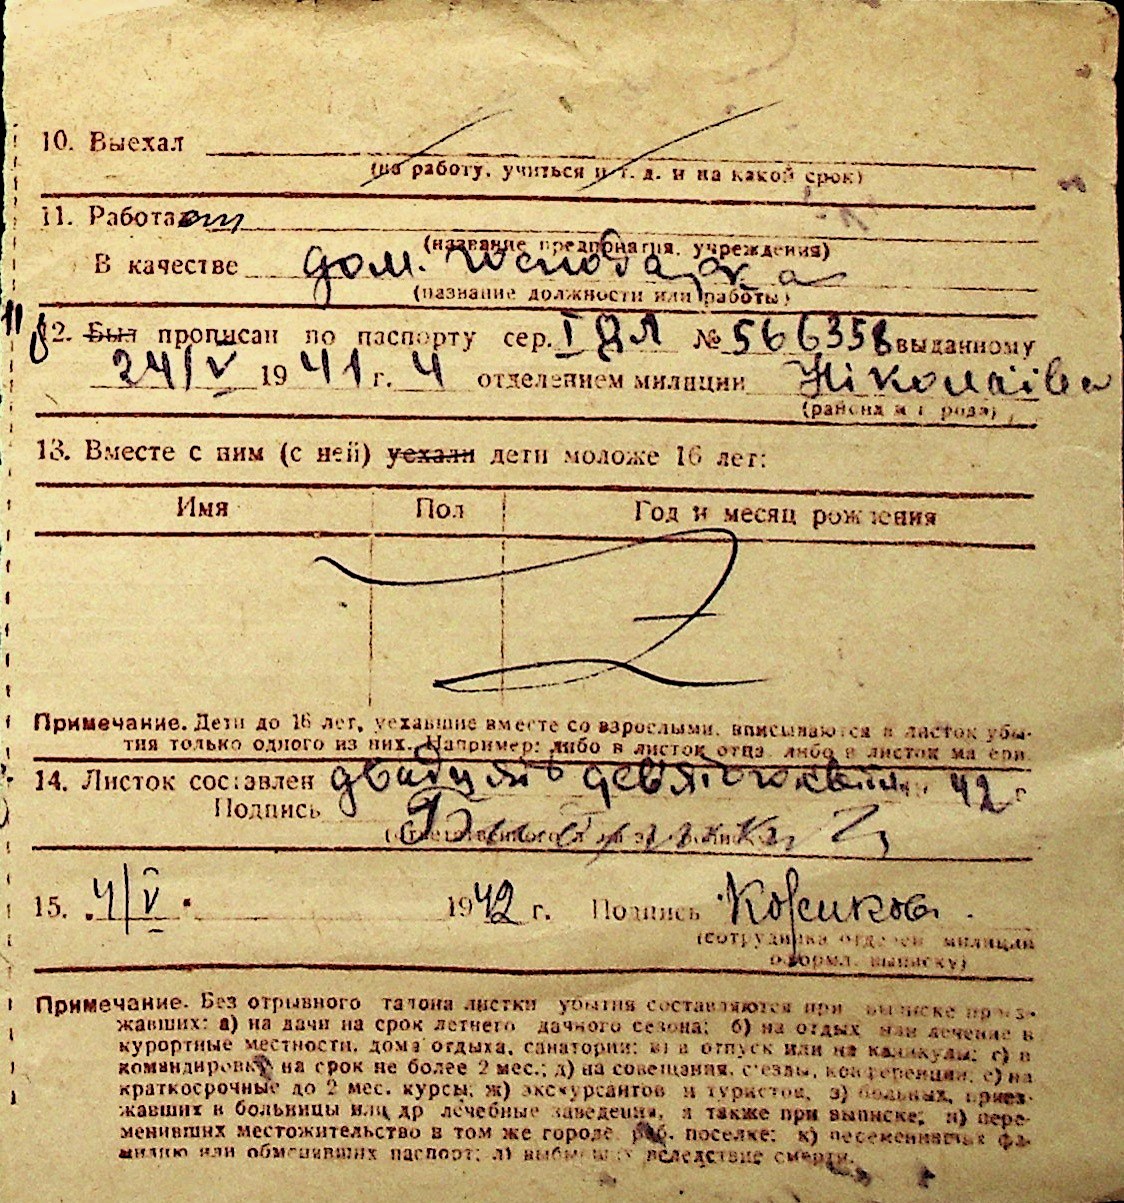 10. Выехал
(на работу, учиться и т. д. и на какой срок)
11. Работает
(название предприятия, учреждения)
В качестве дом. господарка
(название должности или работы)
12. Был прописан по паспорту сер. І ЯЛ № 566358 выданному
24/V 1941 г. 4 отделением милиции Ніколаїва
(района и города)
13. Вместе с ним (с ней) уехали дети моложе 16 лет:
Имя Пол Год и месяц рождения
Примечание. Дети до 16 лет, уехавшие вместе со взрослыми, вписываются в листок убы-
тия только одного из них. Например: либо в листок отца, либо в листок матери.
14. Листок составлен двадцять девятого квітня 42 г
Подпись
15. 4/V 1942 г. Подпись
(сотрудника отделен. милиции
оформл. выписку)
Примечание. Без отрывного талона листки убытия составляются при выписке приез-
жавших: а) на дачи на срок летнего дачного сезона; б) на отдых или лечение в
курортные местности, дома отдыха, санатории; в) в отпуск или на каникулы; г) в
командировку на срок не более 2 мес.; д) на совещания, с'езды, конференции; е) на
краткосрочные до 2 мес. курсы; ж) экскурсантов и туристов, з) больных, приез-
жавших в больницы или др лечебные заведения, а также при выписке; и) пере-
менивших местожительство в том же городе, раб. поселке; к) переменивших фа-
милию или обменивших паспорт; л) выбывших вследствие смерти.